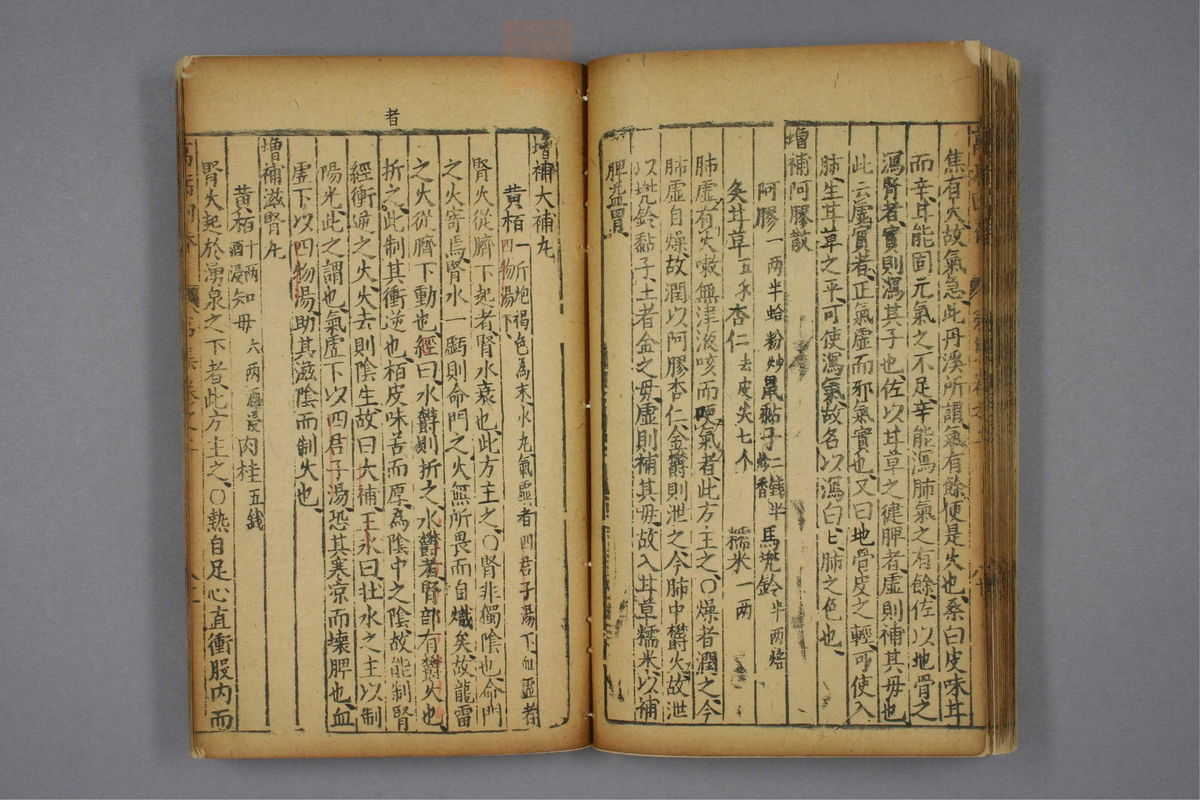 焦有火故氣急此丹溪所謂氣有餘便是火也桑白皮味甘
而辛甘能固元氣之不足辛能瀉肺氣之有餘佐以地骨之
瀉腎者實則瀉其子也佐以甘草之健脾者虛則補其母也
此云虛實者正氣虛而邪氣實也又曰地骨皮之輕可使入
肺生甘草之平可使瀉氣故名以瀉白白肺之色也
增補阿膠散
阿膠一兩半蛤粉炒鼠黏子二錢半炒香馬兜鈴半兩焙
炙甘草五禾杏仁去皮尖七个糯米一兩
肺虛有火嗽無津液咳而哽氣者此方主之〇燥者潤之今
肺虛自燥故潤以阿膠杏仁金欝則泄之今肺中欝火故泄
以兜鈴黏子土者金之母虛則補其母故入甘草糯米以補
脾益胃
者
增補大補丸
黃栢一斤炮褐色為末水丸氣虛者四君子湯下血虛者四物湯下
腎火從臍下起者腎水衰也此方主之〇腎非獨陰也命門
之火寄焉腎水一虧則命門之火無所畏而自熾矣故龍雷
之火從臍下動也經曰水欝則折之水欝者腎部有欝火也
折之此制其衝逆也栢皮味苦而厚為陰中之陰故能制腎
經衝逆之火火去則陰生故曰大補王氷曰壯水之主以制
陽光此之謂也氣虛下以四君子湯恐其寒凉而壞脾也血
虛下以四物湯助其滋陰而制火也
增補滋腎丸
黃栢十兩酒浸知母六兩酒浸肉桂五錢
腎火起於湧泉之下者此方主之〇熱自足心直衝股内而